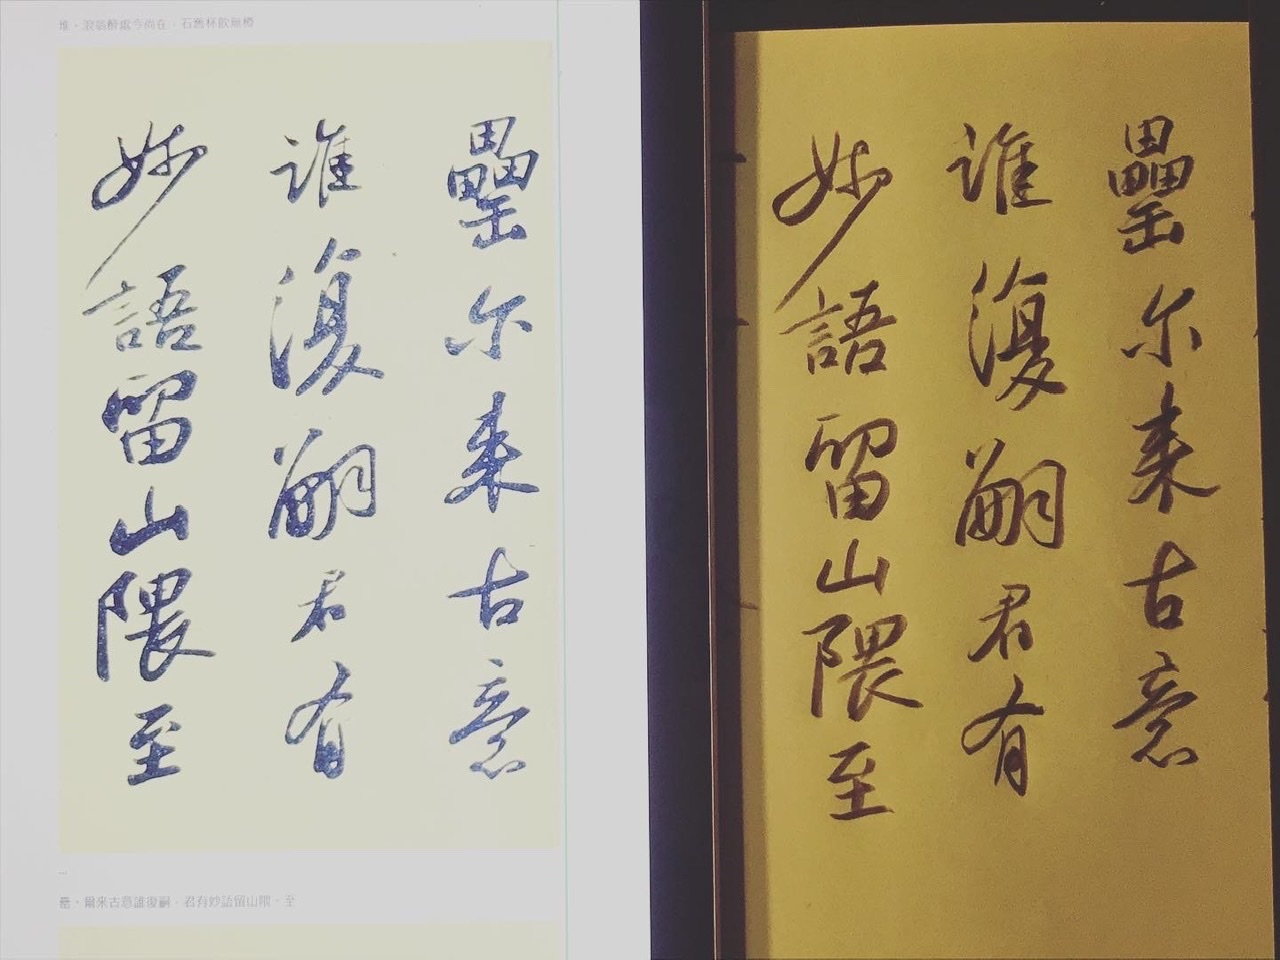 堆。浪翁醉處今尚在，石舊杯飲無樽
罍尔来古意
誰復嗣君有
妙語留山隈至
...
罍。爾來古意誰復嗣，君有妙語留山隈。至
罍尔来古意
誰復嗣君有
妙語留山隈至